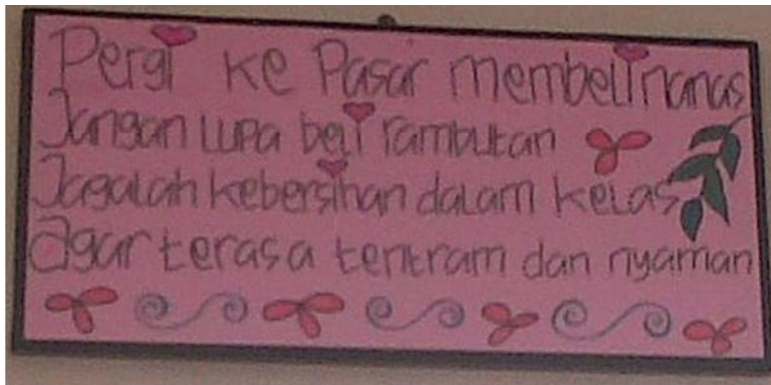 Pergi ke Pasar membeli nanas
Jangan Lupa beli rambutan
Jagalah kebersihan dalam kelas
agar terasa tentram dan nyaman